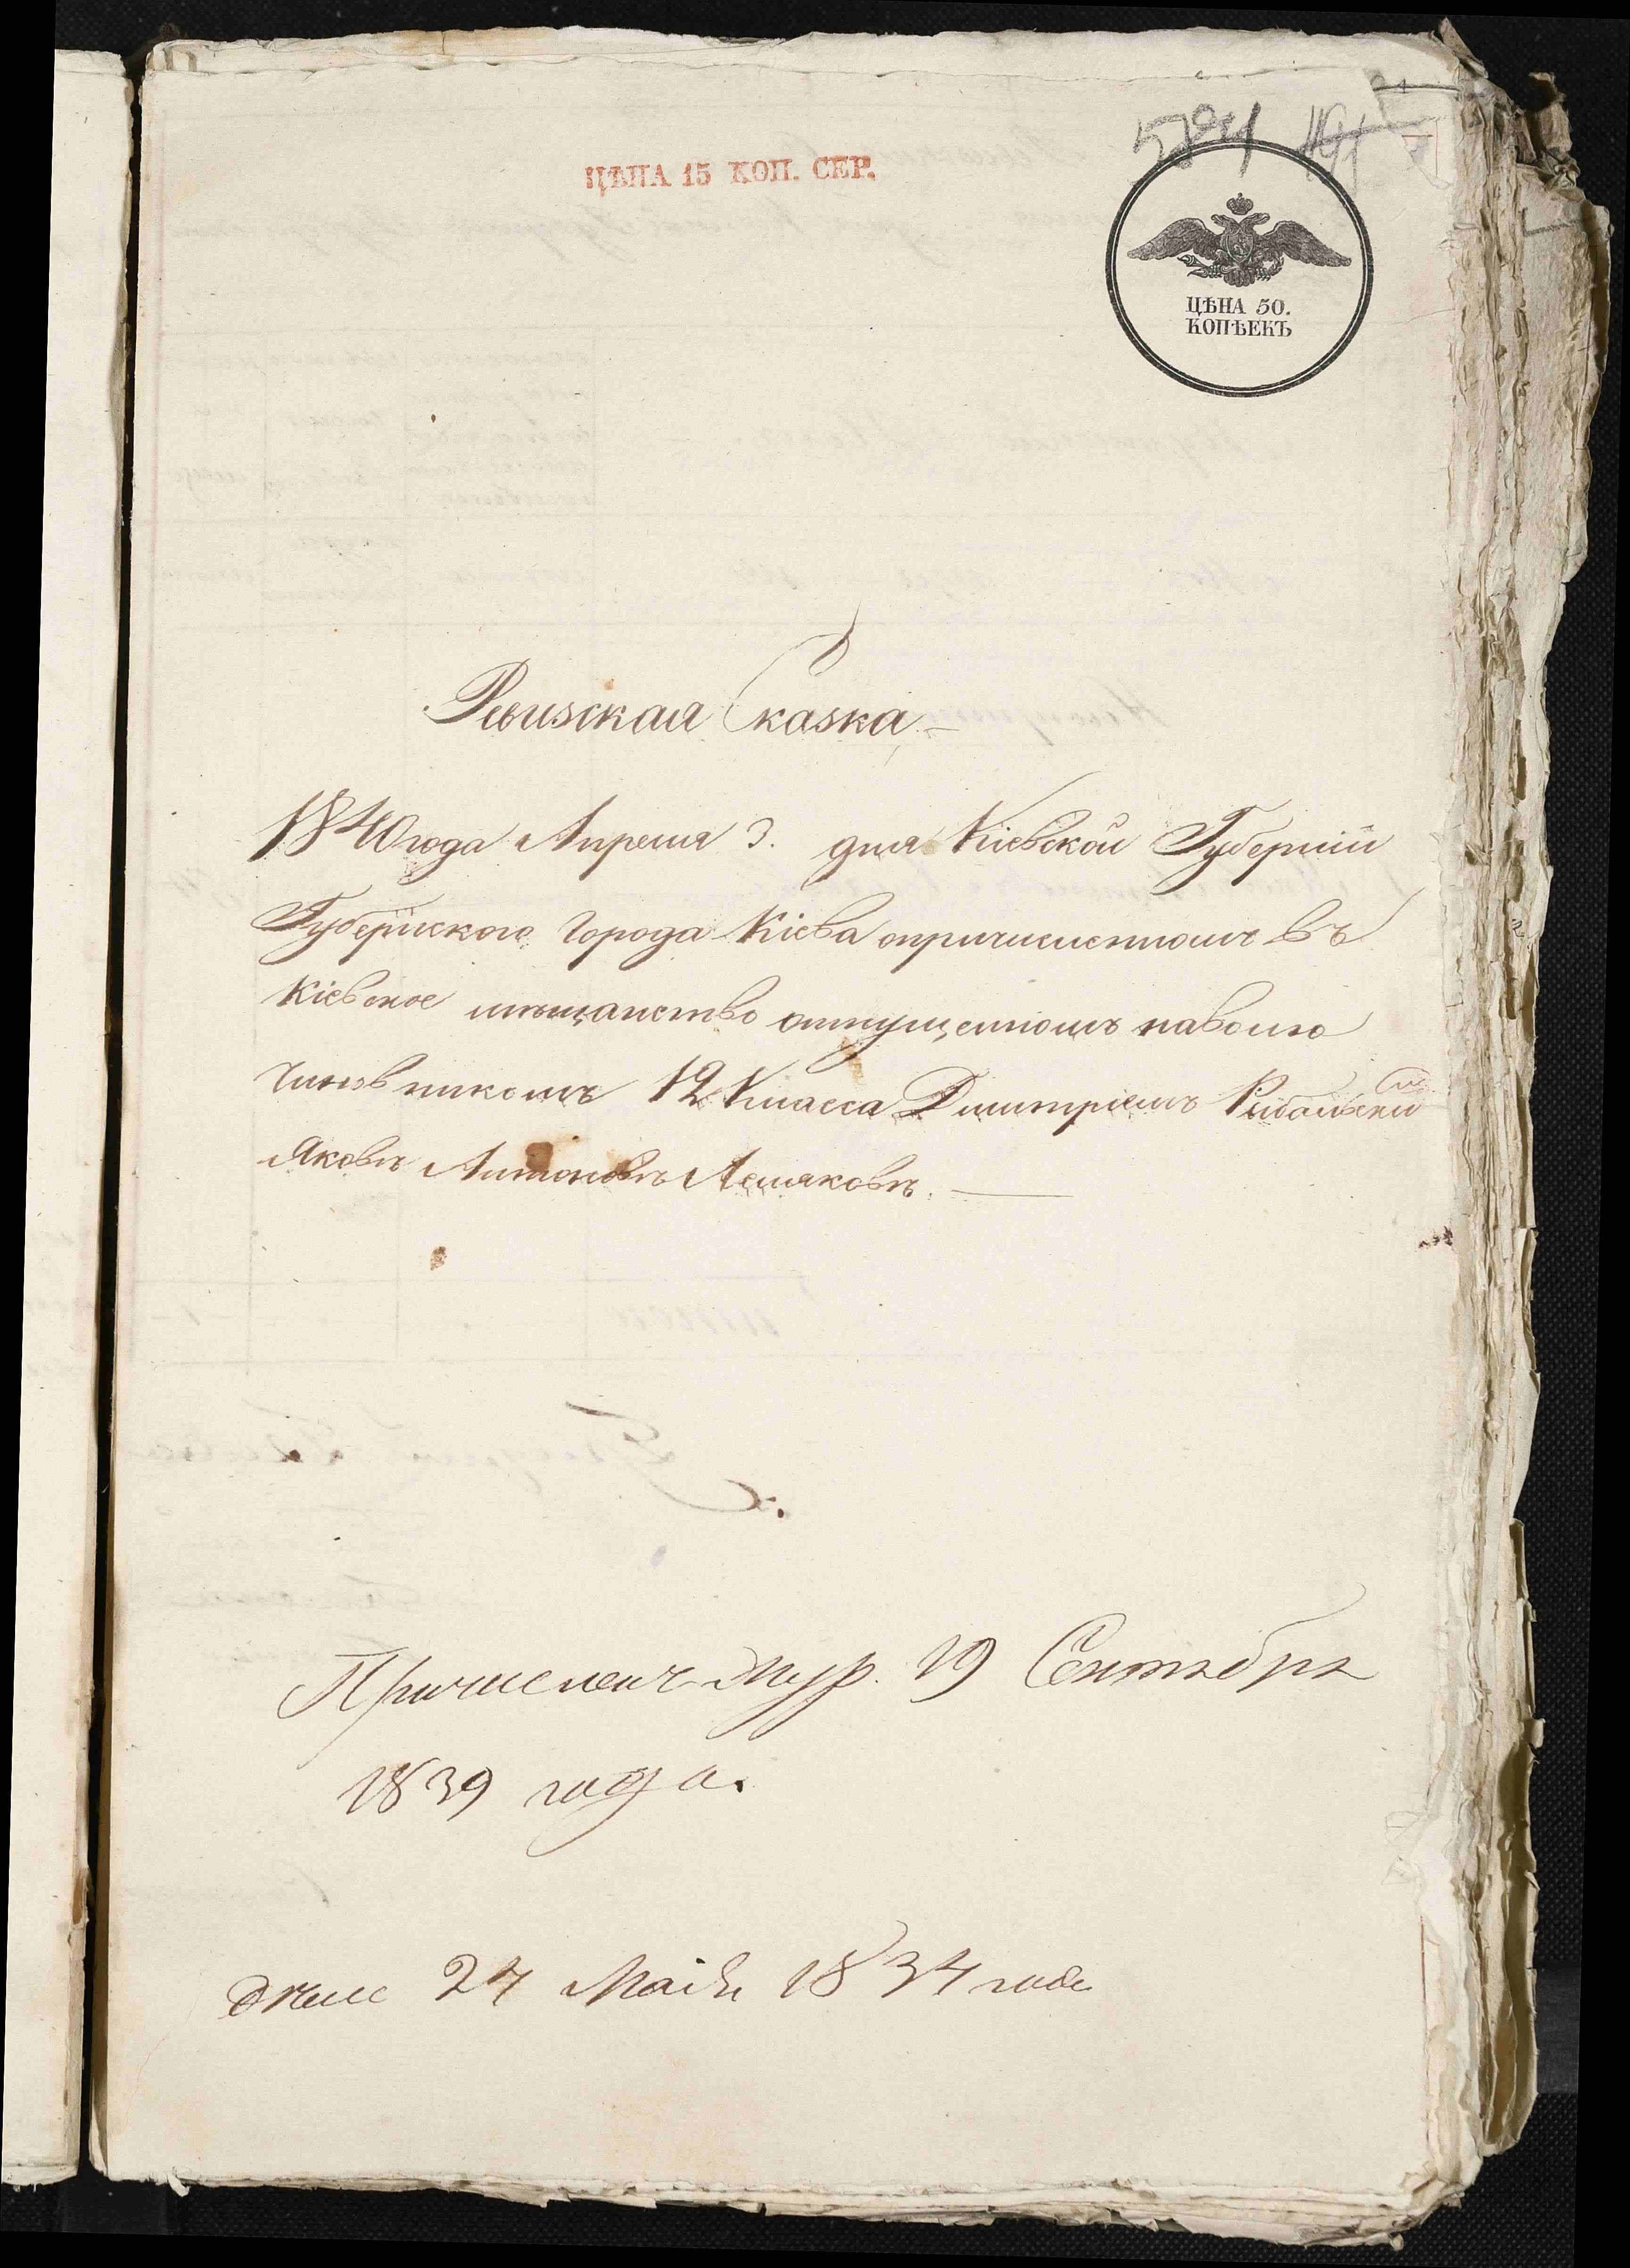 ЦѢНА 15 КОП. СЕР.
ЦѢНА 50.
КОПѢЕКЪ
Ревизская Сказка
1840 года Апреля 3. дня Кіевской Губерніи
Губернскаго Города Кіева опричисленномъ въ
Кіевское мѣщанство отпущенномъ наволю
Чиновникомъ 12 Класса Дмитріемъ Рибальскимъ
Яковѣ Антоновѣ
Причисленъ Жур. 19 Сентября
1839 года.
24 Маія 1834 года